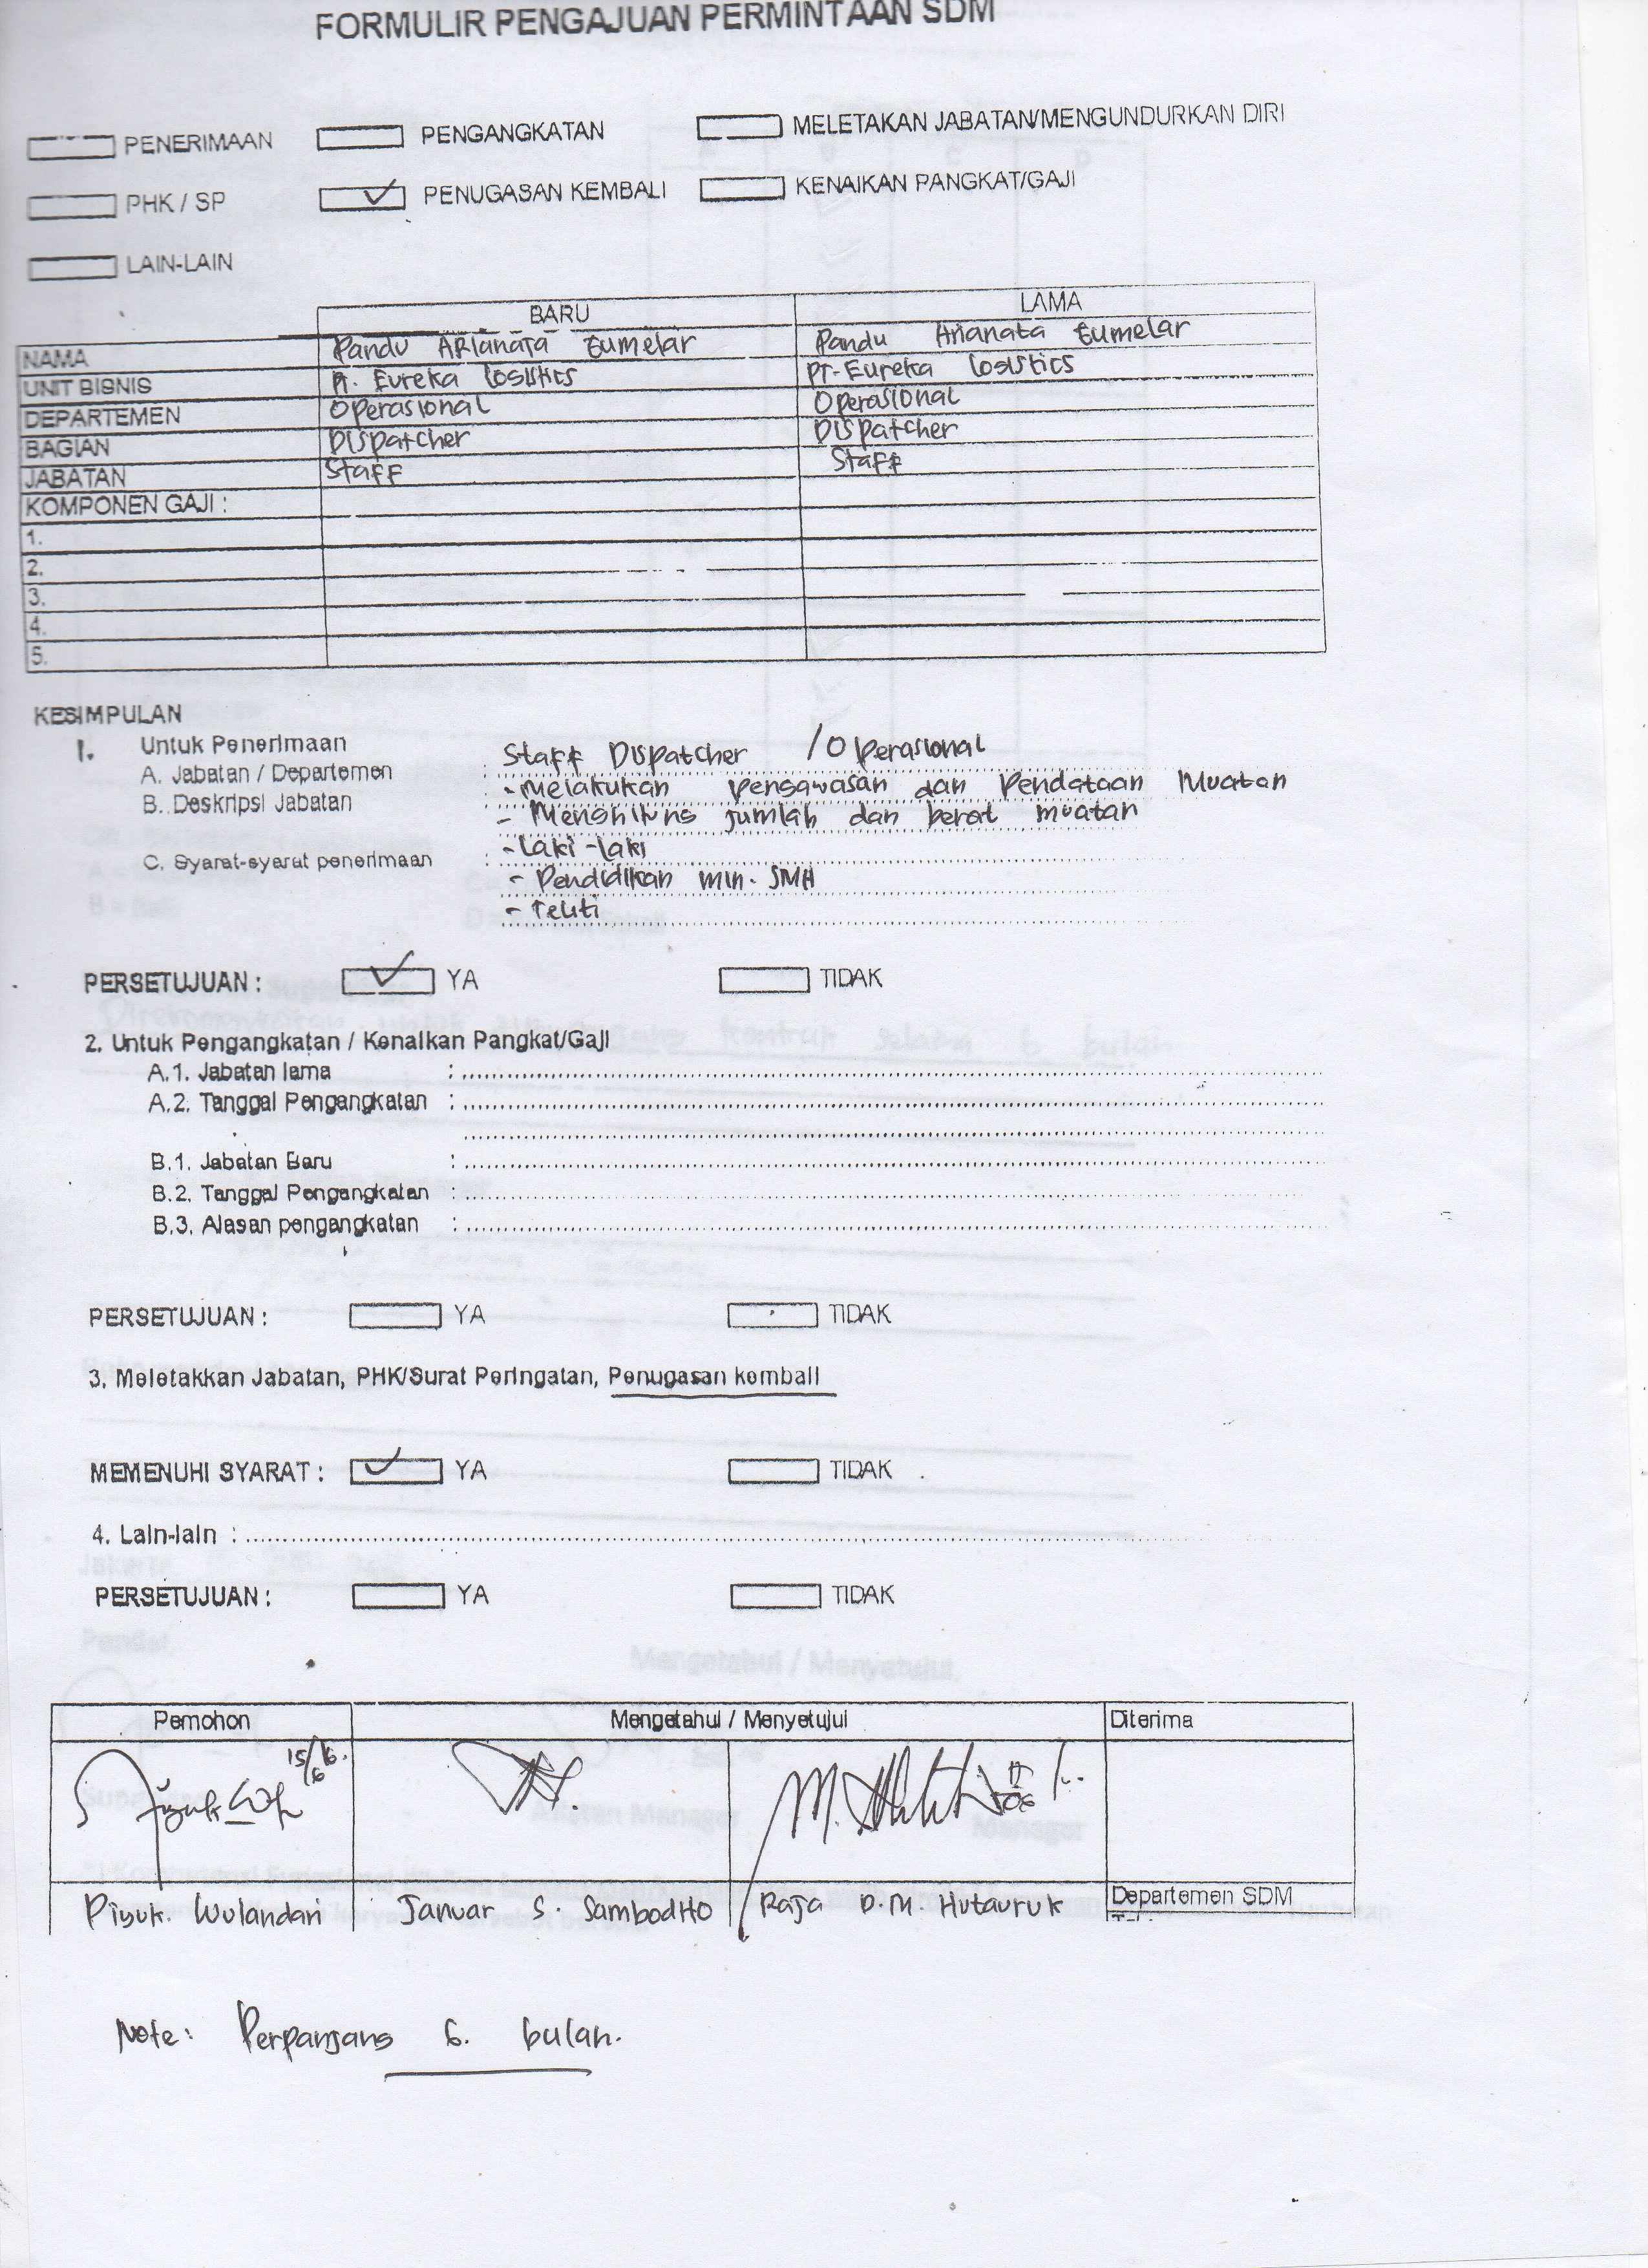 FORMULIR PENGAJUAN PERMINTAAN SDM
PENERIMAAN PENGANGKATAN MELETAKAN JABATAN/MENGUNDURKAN DIRI
PHK / SP PENUGASAN KEMBALI KENAIKAN PANGKAT/GAJI
LAIN-LAIN
BARU LAMA
NAMA Pandu ARIanaTa Eumelar Pandu Arianata Eumelar
UNIT BISNIS PT. Eureka Logistics PT. Eureka Logistics
DEPARTEMEN Operasional Operasional
BAGIAN Dispatcher Dispatcher
JABATAN Staff Staff
KOMPONEN GAJI :
1.
2.
3.
4.
5.
KESIMPULAN
1. Untuk Penerimaan
A. Jabatan / Departemen : Staff Dispatcher / Operasional
B. Deskripsi Jabatan : - Melakukan Pengawasan dan Pendataan Muatan
- Menghitung jumlah dan berat muatan
C. Syarat-syarat penerimaan : - Laki-laki
- Pendidikan min. SMA
- Teliti
PERSETUJUAN : YA TIDAK
2. Untuk Pengangkatan / Kenaikan Pangkat/Gaji
A.1. Jabatan lama :
A.2. Tanggal Pengangkatan :
B.1. Jabatan Baru :
B.2. Tanggal Pengangkatan :
B.3. Alasan pengangkatan :
PERSETUJUAN : YA TIDAK
3. Meletakkan Jabatan, PHK/Surat Peringatan, Penugasan kembali
MEMENUHI SYARAT : YA TIDAK
4. Lain-lain :
PERSETUJUAN : YA TIDAK
Pemohon Mengetahui / Menyetujui Diterima
15/6 16.
Piyuk. Wulandari Januar S. Sambodho Raja D.M. Hutauruk Departemen SDM
Note: Perpanjang 6. bulan.